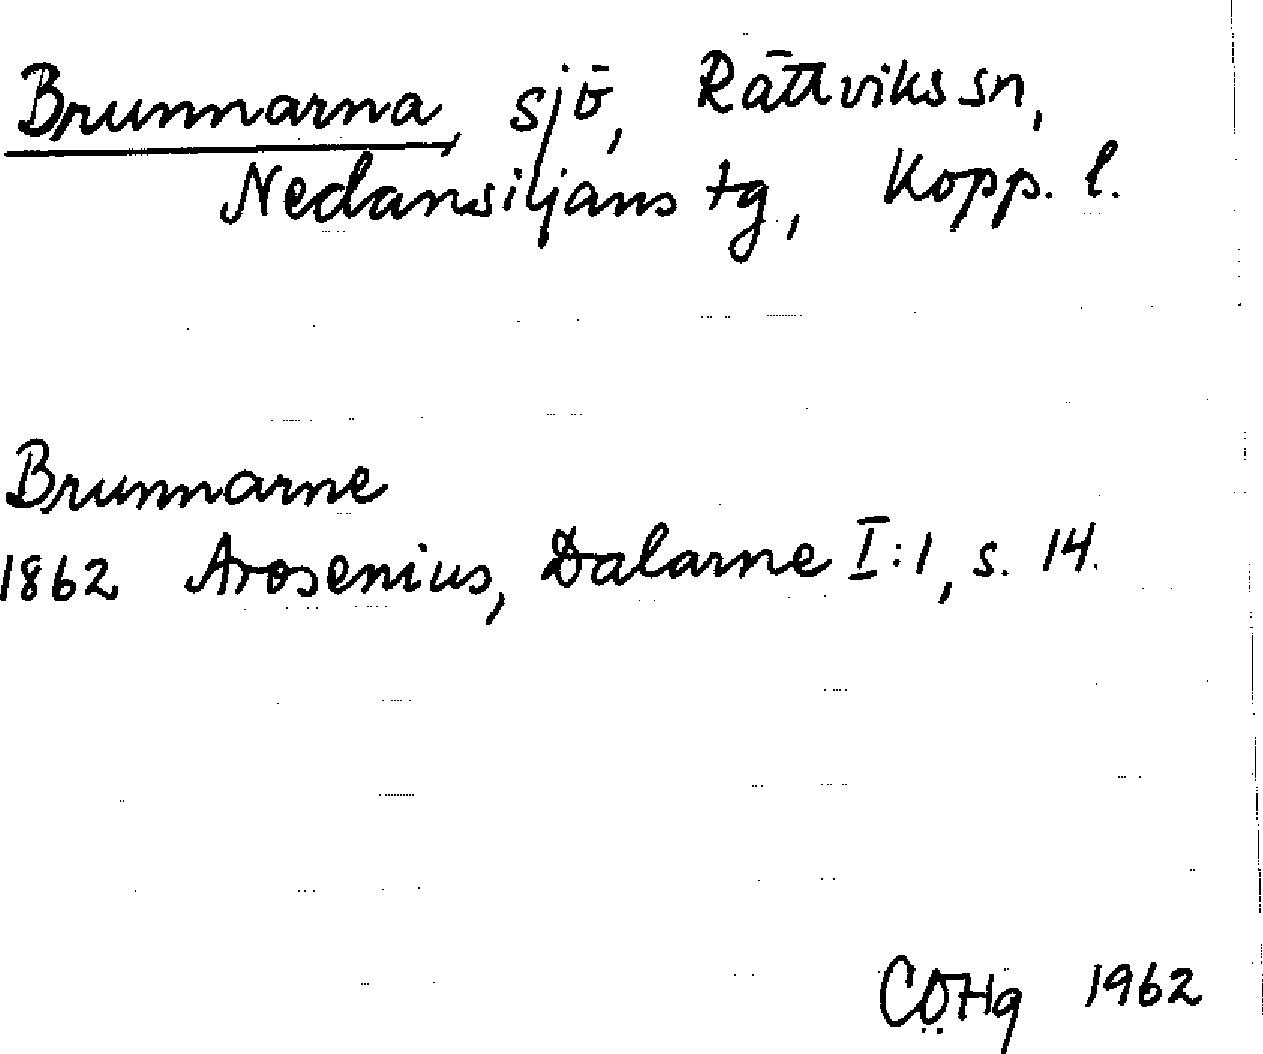 Brunnarna, sjö, Rättviks sn,
Nedansiljans tg, Kopp. l.
Brunnarne
1862 Arosenius, Dalarne I:1, s. 14.
CÖHg 1962